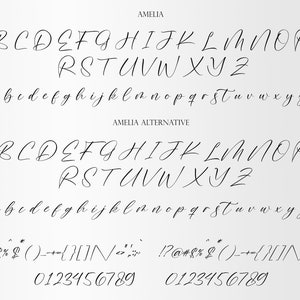 AMELIA
BCDEFGHIJKLMNOP
RSTUVWXYZ
bcdefghijklmnopqrstuvwxy
AMELIA ALTERNATIVE
BCDEFGHIJKLMNOP
RSTUVWXYZ
bcdefghijklmnopqrstuvwxy
0123456789 0123456789